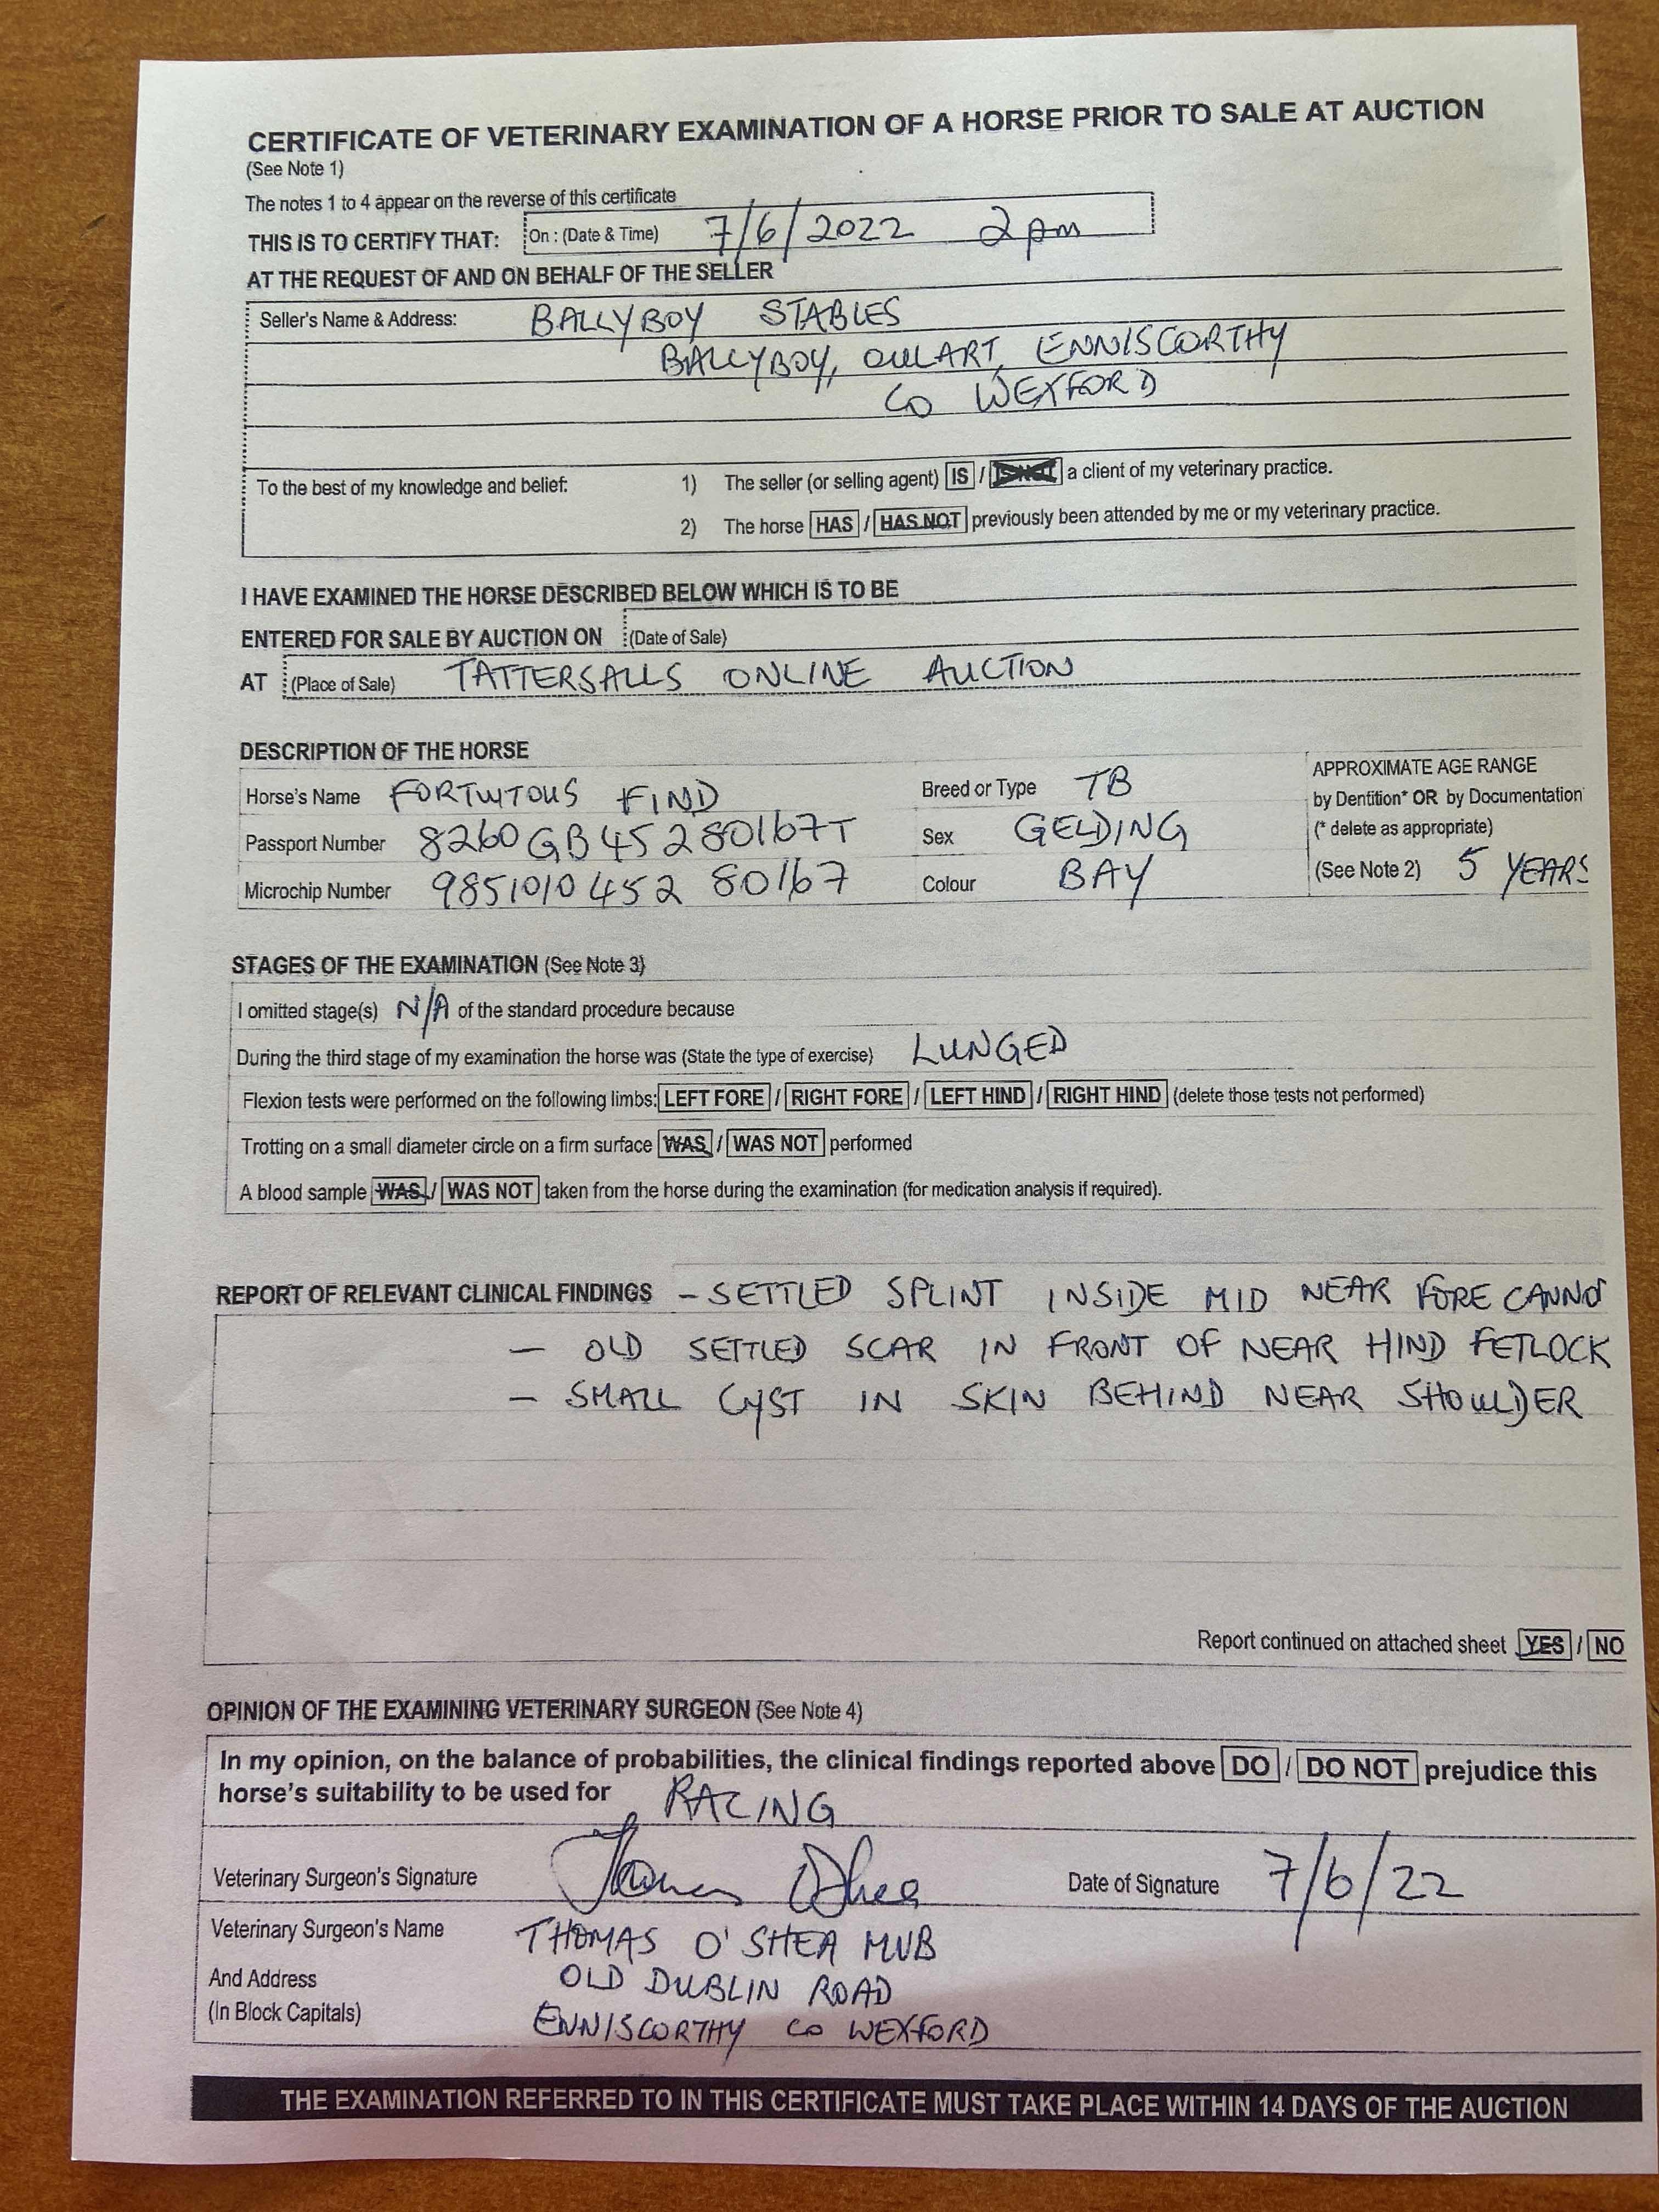 CERTIFICATE OF VETERINARY EXAMINATION OF A HORSE PRIOR TO SALE AT AUCTION
(See Note 1)
The notes 1 to 4 appear on the reverse of this certificate
THIS IS TO CERTIFY THAT: On : (Date & Time) 7/6/2022 2pm
AT THE REQUEST OF AND ON BEHALF OF THE SELLER
Seller's Name & Address: BALLYBOY STABLES
BALLYBOY, OULART, ENNISCORTHY
CO WEXFORD
To the best of my knowledge and belief: 1) The seller (or selling agent) IS / IS NOT a client of my veterinary practice.
2) The horse HAS / HAS NOT previously been attended by me or my veterinary practice.
I HAVE EXAMINED THE HORSE DESCRIBED BELOW WHICH IS TO BE
ENTERED FOR SALE BY AUCTION ON (Date of Sale)
AT (Place of Sale) TATTERSALLS ONLINE AUCTION
DESCRIPTION OF THE HORSE
Horse's Name FORTUITOUS FIND Breed or Type TB APPROXIMATE AGE RANGE
by Dentition* OR by Documentation
Passport Number 8260GB45280167T Sex GELDING (* delete as appropriate)
Microchip Number 985101045280167 Colour BAY (See Note 2) 5 YEARS
STAGES OF THE EXAMINATION (See Note 3)
I omitted stage(s) N/A of the standard procedure because
During the third stage of my examination the horse was (State the type of exercise) LUNGED
Flexion tests were performed on the following limbs: LEFT FORE / RIGHT FORE / LEFT HIND / RIGHT HIND (delete those tests not performed)
Trotting on a small diameter circle on a firm surface WAS / WAS NOT performed
A blood sample WAS / WAS NOT taken from the horse during the examination (for medication analysis if required).
REPORT OF RELEVANT CLINICAL FINDINGS - SETTLED SPLINT INSIDE MID NEAR FORE CANNO
- OLD SETTLED SCAR IN FRONT OF NEAR HIND FETLOCK
- SMALL CYST IN SKIN BEHIND NEAR SHOULDER
Report continued on attached sheet YES / NO
OPINION OF THE EXAMINING VETERINARY SURGEON (See Note 4)
In my opinion, on the balance of probabilities, the clinical findings reported above DO / DO NOT prejudice this
horse's suitability to be used for RACING
Veterinary Surgeon's Signature Thomas O'Shea Date of Signature 7/6/22
Veterinary Surgeon's Name THOMAS O'SHEA MVB
And Address OLD DUBLIN ROAD
(In Block Capitals) ENNISCORTHY CO WEXFORD
THE EXAMINATION REFERRED TO IN THIS CERTIFICATE MUST TAKE PLACE WITHIN 14 DAYS OF THE AUCTION